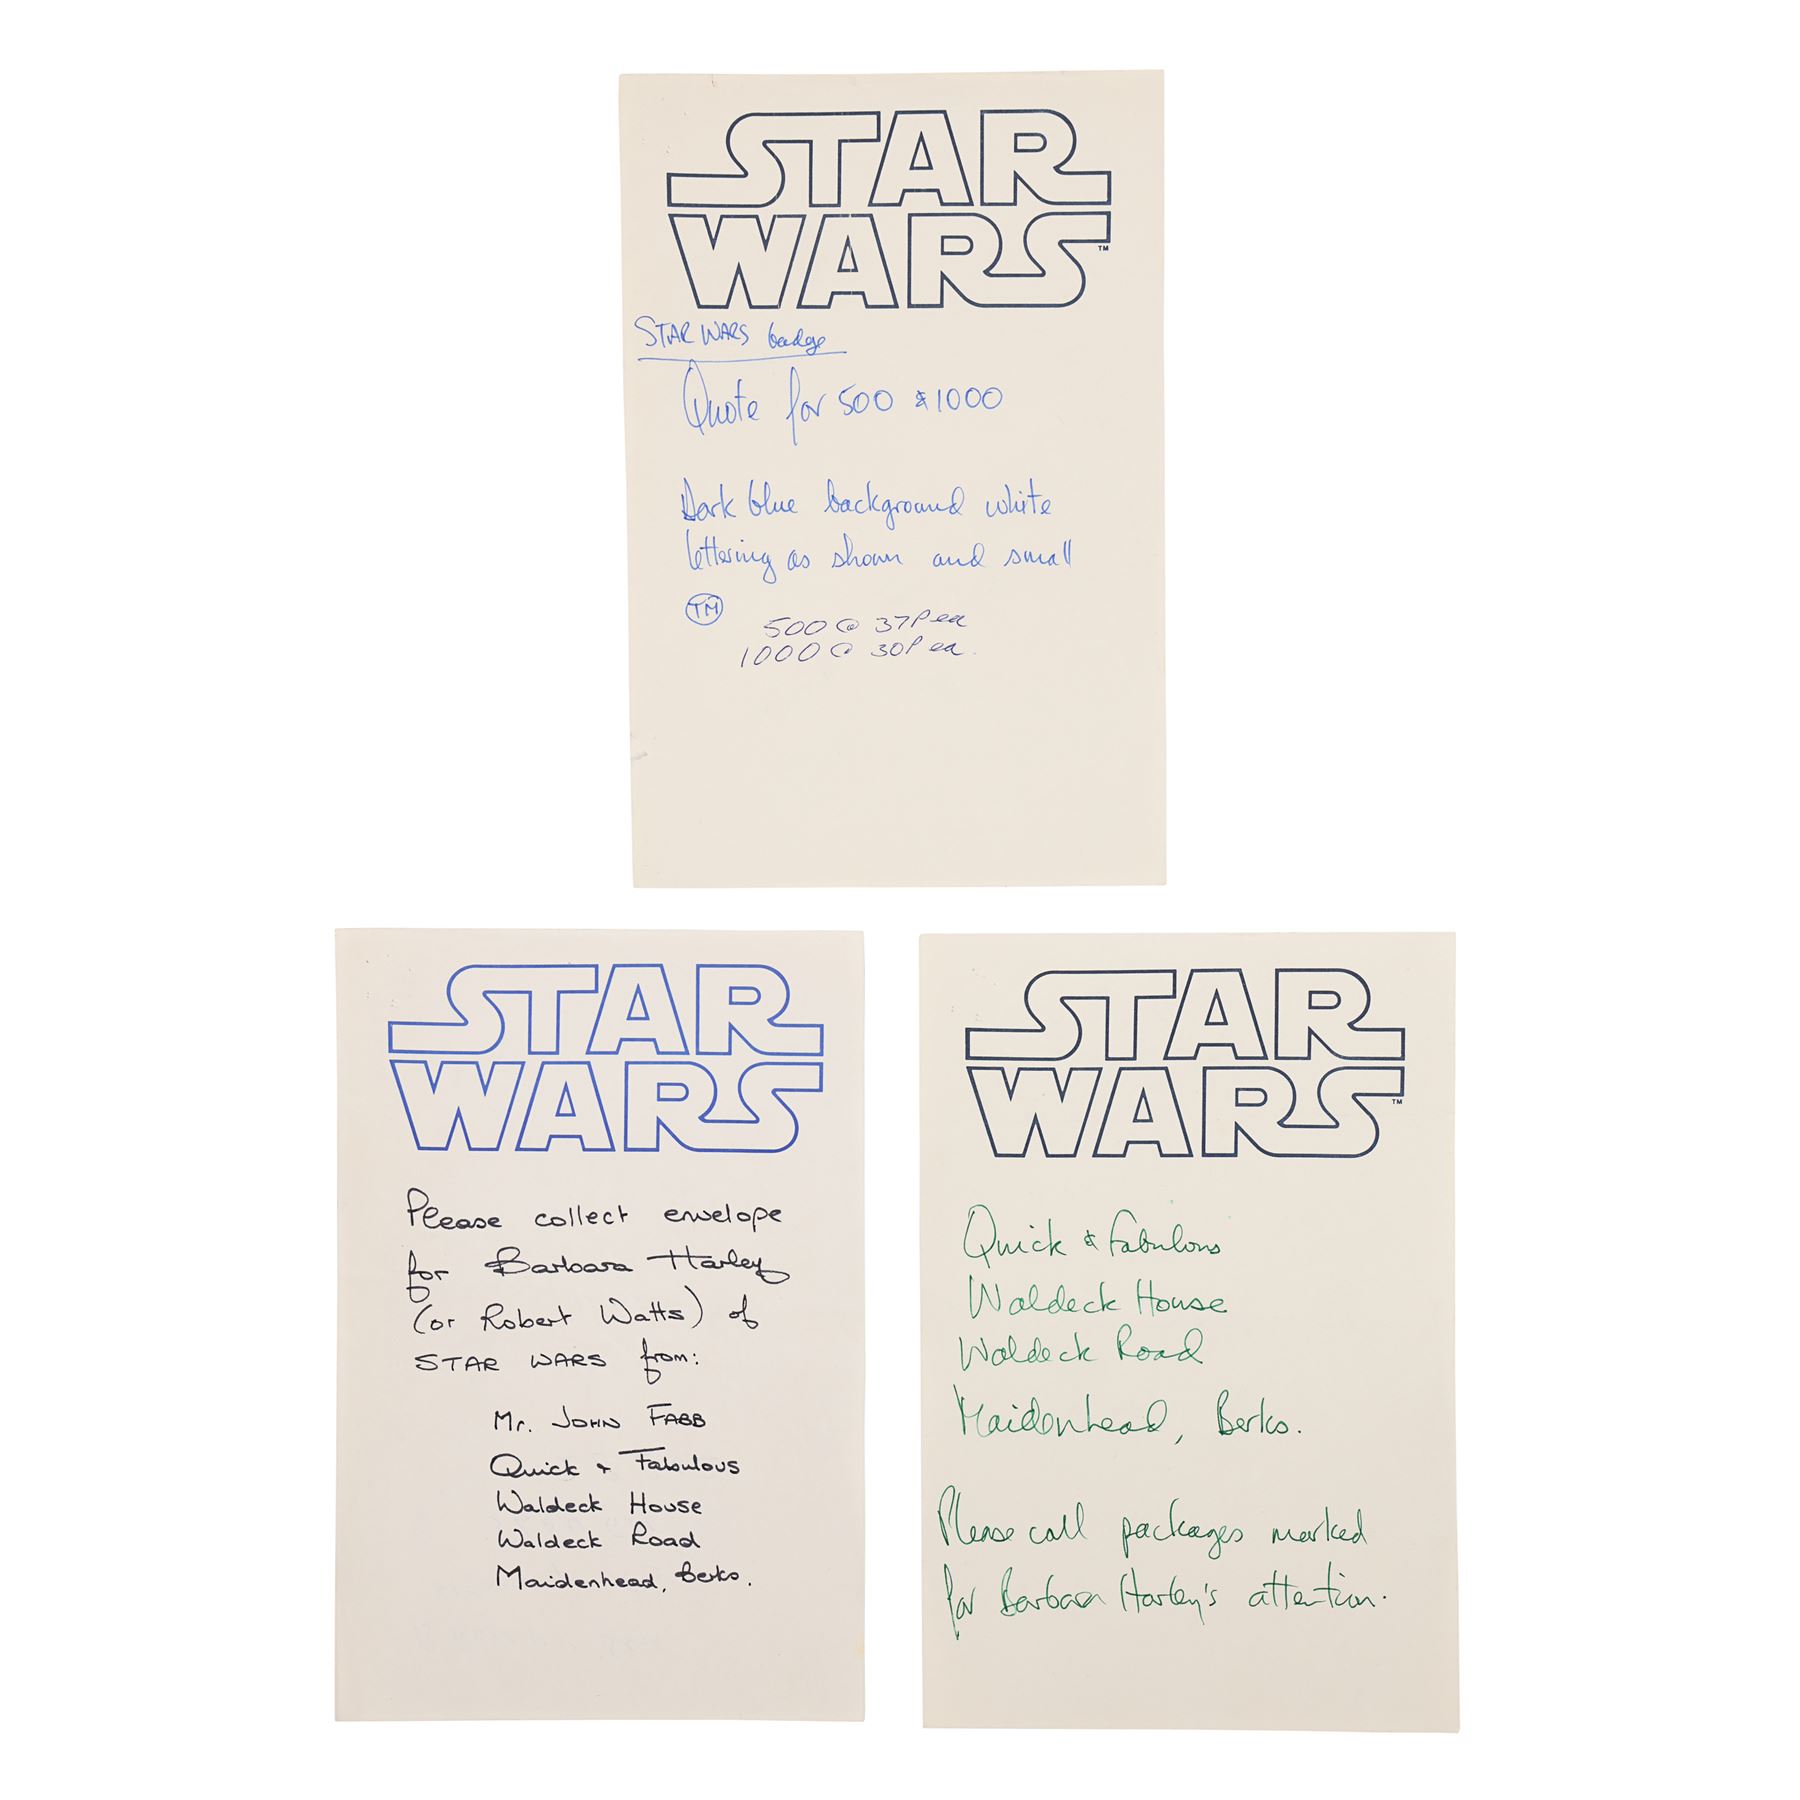 STAR
WARS™
STAR WARS badge
Quote for 500 & 1000
Dark blue background white
lettering as shown and small
TM
500 @ 37P ea
1000 @ 30P ea.
STAR
WARS
Please collect envelope
for Barbara Harley
(or Robert Watts) of
STAR WARS from:
Mr. JOHN FABB
Quick + Fabulous
Waldeck House
Waldeck Road
Maidenhead, Berks.
STAR
WARS™
Quick & Fabulous
Waldeck House
Waldeck Road
Maidenhead, Berks.
Please call packages marked
for Barbara Harley's attention.